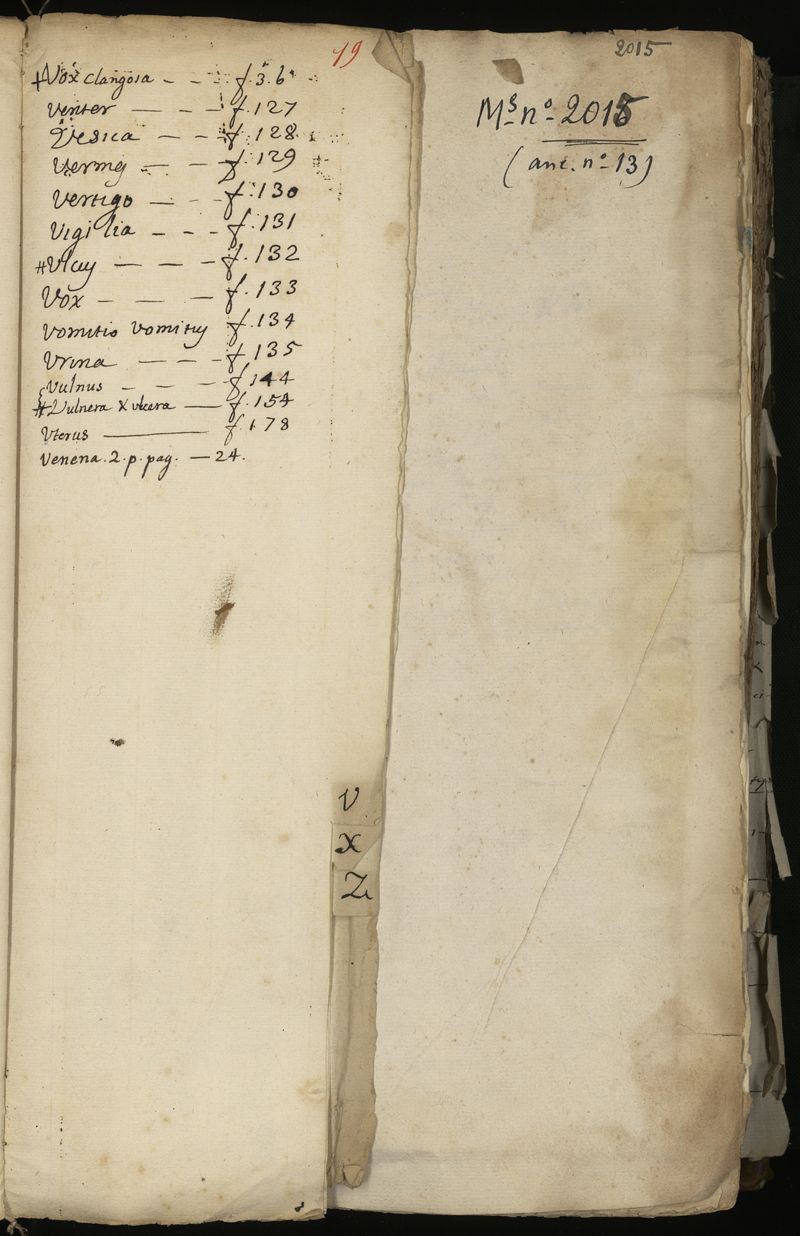 19
‡Vox clangosa - - - f. 3. 6
Venter — — - f. 127
Vesica — — - f. 128
Vermes — - f. 129
Vertigo — - - f. 130
Vigilia - - - f. 131
#Vlcus — — - f. 132
Vox - — — f. 133
Vomitio Vomitus f. 134
Vrina — - - f. 135
Vulnus - — - f. 144
#Vulnera & vlcera — f. 154
Vterus —— f. 178
Venena. 2. p. pag. — 24.
V
X
Z
2015
Ms. nº. 2015
(anc. nº. 13)